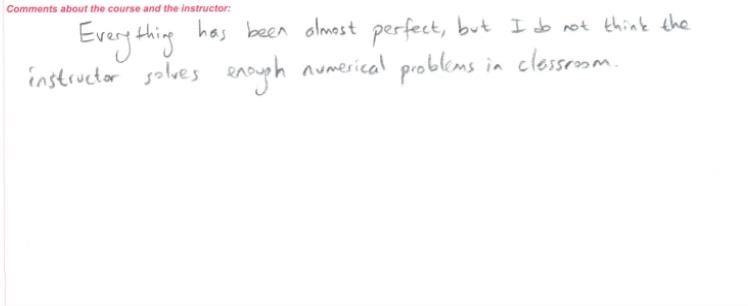 Comments about the course and the instructor:
Everything has been almost perfect, but I do not think the
instructor solves enough numerical problems in classroom.